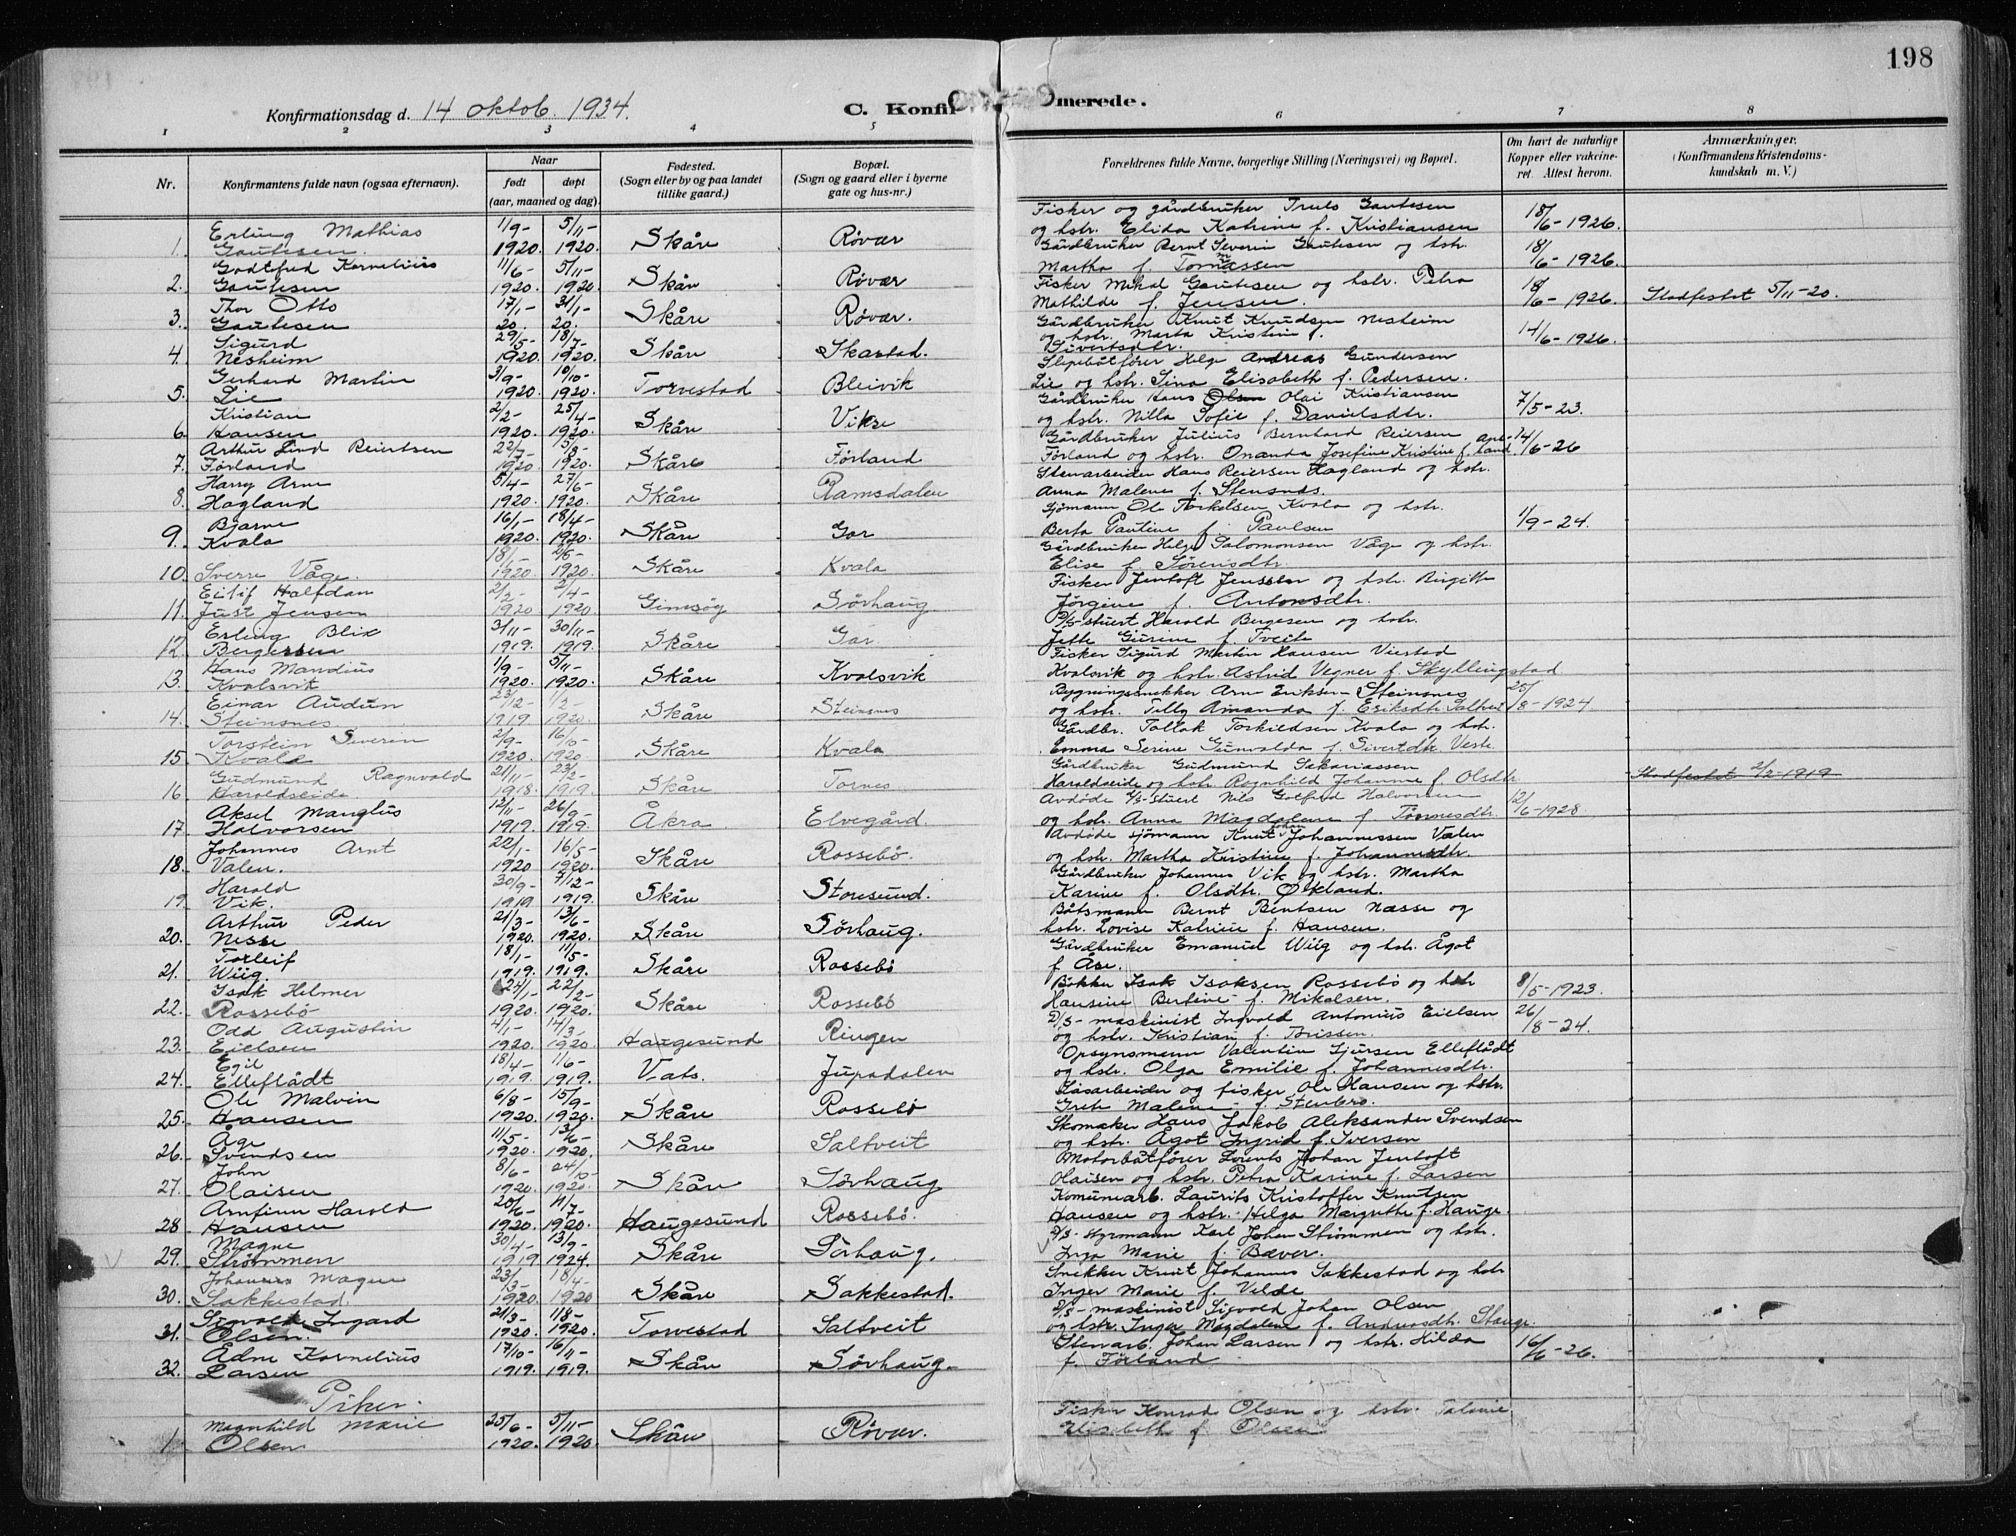 198
Konfirmationsdag d. 14 oktob. 1934.
C. Konfirmerede.
1 2 3 4 5 6 7 8
Nr.
Konfirmantens fulde navn (ogsaa efternavn).
Naar
født døpt
(aar, maaned og dag).
Fødested.
(Sogn eller by og paa landet
tillike gaard.)
Bopæl.
(Sogn og gaard eller i byerne
gate og hus-nr.)
Forældrenes fulde Navne, borgerlige Stilling (Næringsvei) og Bopæl.
Om havt de naturlige
Kopper eller vakcine-
ret. Attest herom.
Anmærkninger.
(Konfirmandens Kristendoms-
kundskab m. V.)
Erling Mathias 1/9- 5/11- Fisker og gårdbruker Truls Gautesen 18/6-1926.
1. Gautesen. 1920. 1920. Skåre Røvær og hstr. Elida Katrine f. Kristiansen
Godtfred Kornelius 11/6- 5/11- Gårdbruker Bernt Severin Gautesen og hstr. 18/6-1926.
2. Gautesen 1920. 1920. Skåre Røvær Martha f. Tomassen
Thor Otto 17/1- 31/1- Fisker Mikal Gautesen og hstr. Petra 18/6-1926. Stadfestet 5/11-20.
3. Gautesen 20. 20. Skåre Røvær. Mathilde f. Jensen.
Sigurd 29/5- 18/7- Gårdbruker Knut Knudsen Nesheim 14/6-1926.
4. Nesheim 1920. 1920. Skåre Skastad. og hstr. Marta Kristine f. Sivertsdtr.
Gerhard Martin 3/9- 10/10- Slipebåtfører Helge Andreas Gundersen
5. Lie 1920. 1920. Torvestad Bleivik Lie og hstr. Sina Elisabeth f. Pedersen.
Kristian 2/2- 25/4- Gårdbruker Hans Olsen Olai Kristiansen 7/5-23.
6. Hansen 1920. 1920. Skåre Vikse og hstr. Nilla Sofie f. Danielsdtr.
Arthur Lind Reiertsen 22/7- 5/8- Gårdbruker Julius Bernhard Reiersen 14/6-26
7. Førland 1920. 1920. Skåre Førland Førland og hstr. Onanda Josefine Kristine f. land.
Harry Arne 5/4- 27/6- Stenarbeider Hans Reiersen Hagland og hstr.
8. Hagland 1920. 1920. Skåre Ramsdalen Anna Malene f. Stensnes.
Bjarne 16/1- 18/4- Sjømann Ole Torkelsen Kvala og hstr. 1/9-24.
9. Kvala 1920. 1920. Skåre Gar Berta Pauline f. Paulsen
18/1- 2/5- Gårdbruker Helge Salomonsen Våge og hstr.
10. Sverre Våge. 1920. 1920. Skåre Kvala Elise f. Sørensdtr.
Eilif Halfdan 2/2- 2/4- Fisker Jentoft Jenssen og hstr. Birgitte
11. Just Jensen 1920 1920 Gimsöy Sörhaug Jørgine f. Antonsdtr.
Erling Blix 3/11- 30/11- D/S-stuert Harald Bergesen og hstr.
12. Bergesen 1919. 1919. Skåre Gar. Jette Gurine f. Tveite
Hans Mandius 1/9- 5/11- Fisker Sigurd Martin Hansen Vierstad
13. Kvalsvik 1920. 1920. Skåre Kvalsvik Kvalsvik og hstr. Astrid Vegner f. Skyllingstad
Einar Audun 23/12- 1/2- Bygningssnekker Arne Eriksen Steinsnes 25/8-1924
14. Steinsnes. 1919. 1920. Skåre Steinsnes og hstr. Tilly Amanda f. Eriksdtr. Saltveit
Torstein Severin 2/9- 16/10- Gårdbr. Tollak Torkildsen Kvala og hstr.
15. Kvala 1920. 1920 Skåre Kvala Emma Serine Gunvalda f. Sivertdtr. Veste.
Gudmund Ragnvald 21/11- 23/2- Gårdbruker Gudmund Sakariassen
16. Haraldseide 1918. 1919. Skåre Tornes. Haraldseide og hstr. Ragnhild Johanne f. Olsdtr. Stadfestet 2/2-1919
Aksel Manglus 12/11- 26/9- Avdøde D/S-stuert Nils Gotfred Halvorsen 12/6-1928
17. Halvorsen 1919. 1919. Åkra Elvegård. og hstr. Anna Magdalene f. Tönnesdtr.
Johannes Arnt 22/1- 16/5- Avdøde sjömann Knut Johan Johannessen Valen
18. Valen. 1920 1920. Skåre Rossebö. og hstr. Martha Kristine f. Johannesdtr.
Harald 30/9- 7/12- Gårdbruker Johannes Vik og hstr. Martha
19. Vik. 1919 1919. Skåre Storesund. Karine f. Olsdtr. Økland.
Arthur Peder 21/3- 13/6- Båtsmann Bernt Bentsen Næsse og
20. Nesse 1920. 1920. Skåre Sörhaug. hstr. Lovise Katrine f. Hansen.
Torleif 18/1- 11/5- Gårdbruker Emanuel Wiig og hstr. Ågot
21. Wiig. 1919. 1919. Skåre Rossebö f. Åse.
Isak Helmer 24/1- 22/2- Bökker Isak Isaksen Rossebö og hstr. 8/5-1923.
22. Rossebö 1920. 1920. Skåre Rossebö Hansine Bertine f. Mikalsen.
Odd Augustin 4/1- 14/3- D/S-maskinist Ingvald Antonius Eielsen 26/8-24.
23. Eielsen 1920. 1920 Haugesund Ringen og hstr. Kristian f. Brissen.
Egil 18/4- 11/6- Opsynsmann Valentin Sjursen Elleflådt
24. Elleflådt 1919. 1919. Vats. Jupadalen og hstr. Olga Emilie f. Johannesdtr.
Ole Malvin 6/8- 15/9- Løsarbeider og fisker Ole Hansen og hstr.
25. Hansen 1920. 1920. Skåre Rossebö Grete Malene f. Stenbro.
Åge 11/5- 13/6- Skomaker Hans Jakob Aleksander Svendsen
26. Svendsen 1920. 1920. Skåre Saltveit og hstr. Ågot Ingrid f. Iversen
John 8/6- 24/10- Motorbåtfører Lorents Johan Jentoft
27. Olaisen 1920. 1920. Skåre Sörhaug Olaisen og hstr. Petra Karine f. Larsen
Arnfinn Harald 20/6- 11/7- Komunearb. Laurits Kristoffer Knutsen
28 Hansen 1920. 1920. Haugesund Rossebö. Hansen og hstr. Helga Margrethe f. Hauge.
Magne 30/4- 13/9- D/S-styrmann Karl Johan Strömmen og hstr.
29. Strömmen 1919 1924. Skåre Sörhaug. Inga Marie f. Bæver.
Johannes Magne 23/3- 18/4- Snekker Knut Johannes Sakkestad og hstr
30. Sakkestad. 1920. 1920 Skåre Sakkestad. Inger Marie f. Velde
Sigvald Ingard 21/3- 1/8- D/S-maskinist Sigvald Johan Olsen
31. Olsen. 1920. 1920. Torvestad Saltveit og hstr. Inger Magdalene f. Andreasdtr. Stange.
Edne Kornelius 17/10- 16/11- Stenarb. Johan Larsen og hstr. Hilda 16/6-26.
32. Larsen 1919. 1919. Skåre Sörhaug. f. Förland
Piker.
Magnhild Marie 25/6- 5/11- Fisker Konrad Olsen og hstr. Talanie
1 Olsen 1920. 1920 Skåre Røvær. Elisabeth f. Olsen